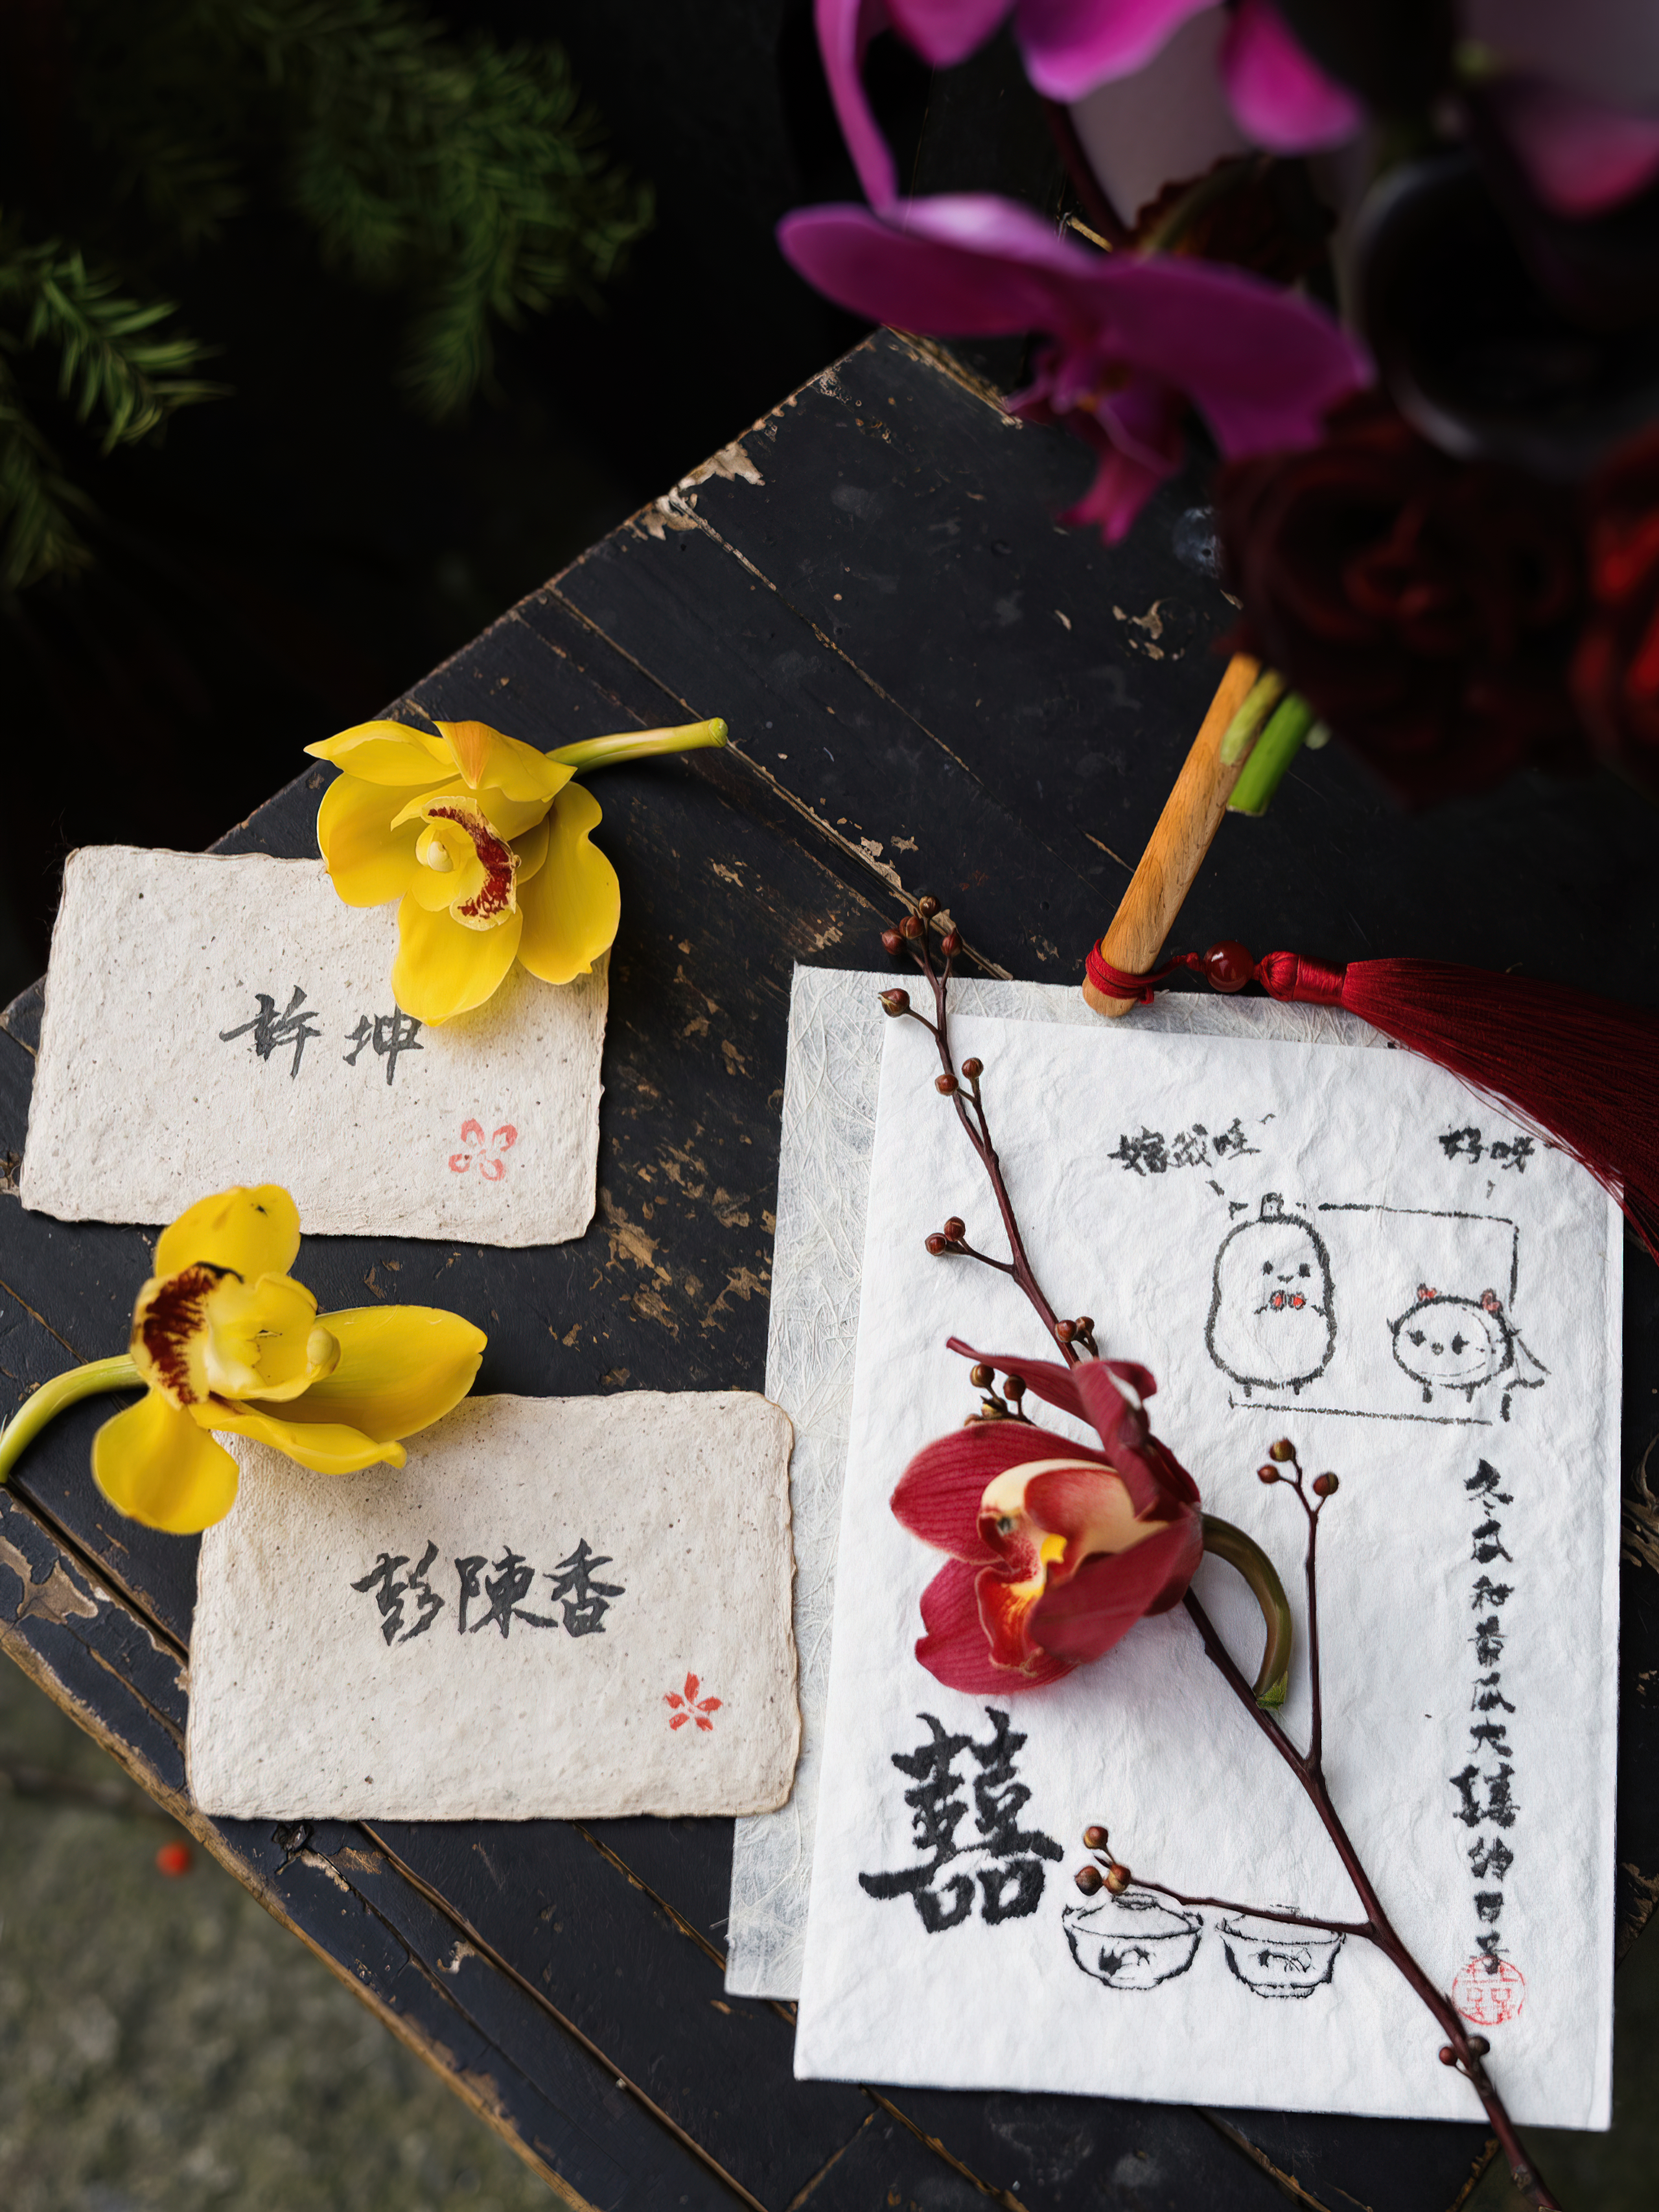 許坤
彭陳香
嫁我哇~
好呀
冬瓜和番瓜大囍的日子
囍
囍